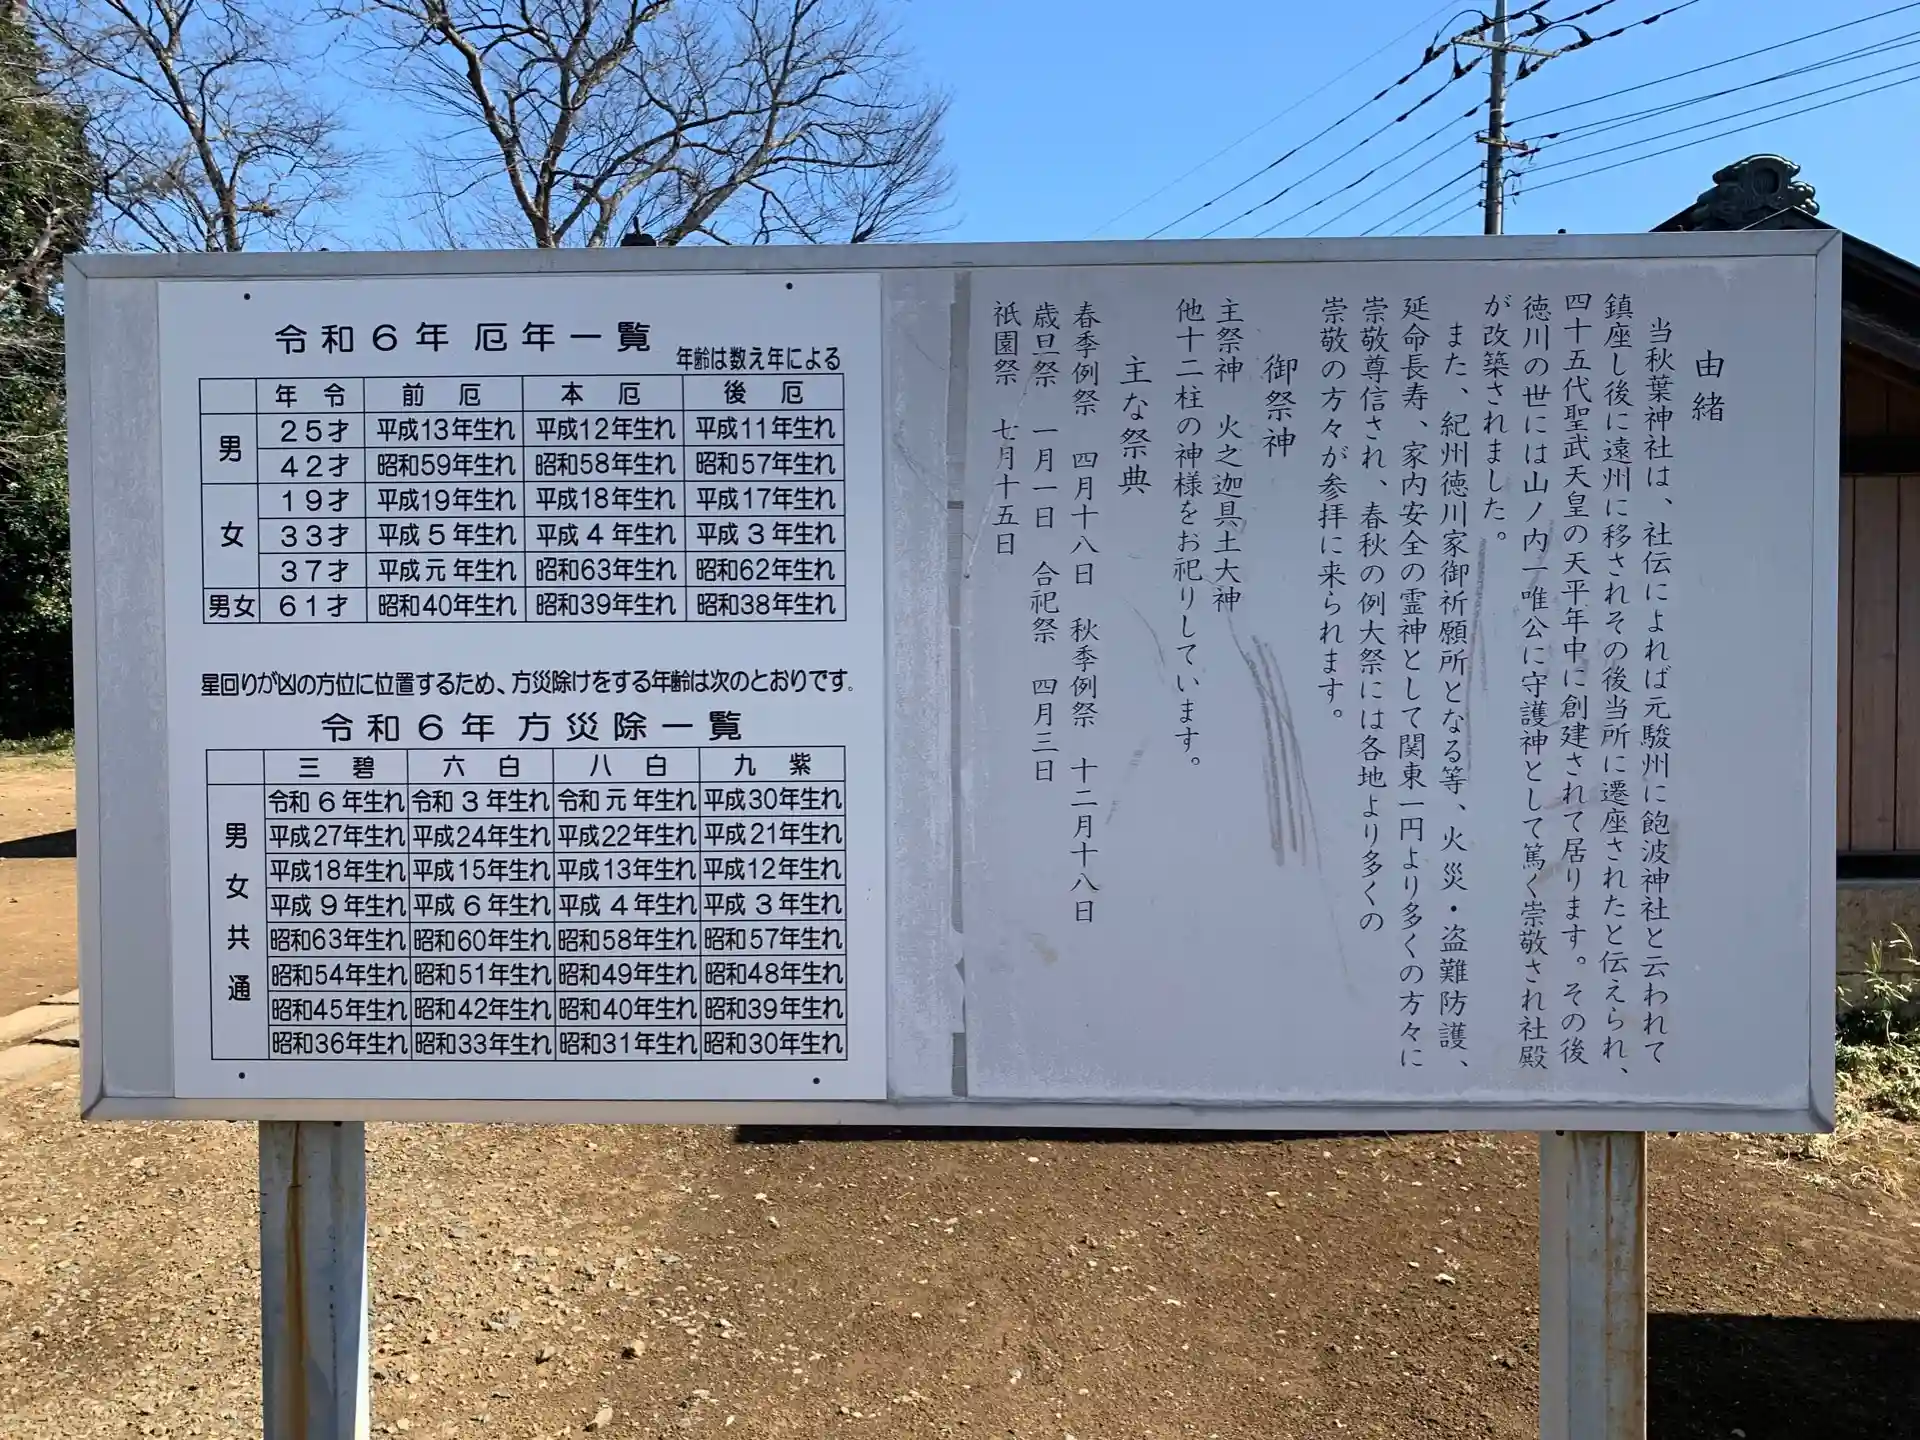 由緒
当秋葉神社は、社伝によれば元駿州に飽波神社と云われて
鎮座し後に遠州に移されその後当所に遷座されたと伝えられ、
四十五代聖武天皇の天平年中に創建されて居ります。その後
徳川の世には山ノ内一唯公に守護神として篤く崇敬され社殿
が改築されました。
また、紀州徳川家御祈願所となる等、火災・盗難防護、
延命長寿、家内安全の霊神として関東一円より多くの方々に
崇敬尊信され、春秋の例大祭には各地より多くの
崇敬の方々が参拝に来られます。
御祭神
主祭神 火之迦具土大神
他十二柱の神様をお祀りしています。
主な祭典
春季例祭 四月十八日 秋季例祭 十二月十八日
歳旦祭 一月一日 合祀祭 四月三日
祇園祭 七月十五日
令和6年 厄年一覧
年齢は数え年による
年令 前厄 本厄 後厄
男 25才 平成13年生れ 平成12年生れ 平成11年生れ
42才 昭和59年生れ 昭和58年生れ 昭和57年生れ
女 19才 平成19年生れ 平成18年生れ 平成17年生れ
33才 平成5年生れ 平成4年生れ 平成3年生れ
37才 平成元年生れ 昭和63年生れ 昭和62年生れ
男女 61才 昭和40年生れ 昭和39年生れ 昭和38年生れ
星回りが凶の方位に位置するため、方災除けをする年齢は次のとおりです。
令和6年 方災除一覧
三碧 六白 八白 九紫
男女共通
令和6年生れ 令和3年生れ 令和元年生れ 平成30年生れ
平成27年生れ 平成24年生れ 平成22年生れ 平成21年生れ
平成18年生れ 平成15年生れ 平成13年生れ 平成12年生れ
平成9年生れ 平成6年生れ 平成4年生れ 平成3年生れ
昭和63年生れ 昭和60年生れ 昭和58年生れ 昭和57年生れ
昭和54年生れ 昭和51年生れ 昭和49年生れ 昭和48年生れ
昭和45年生れ 昭和42年生れ 昭和40年生れ 昭和39年生れ
昭和36年生れ 昭和33年生れ 昭和31年生れ 昭和30年生れ